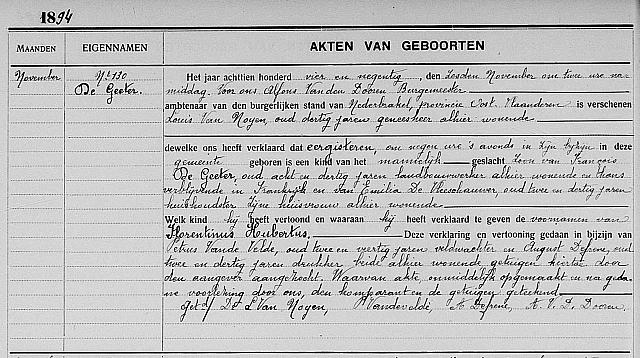 1894
MAANDEN
EIGENNAMEN
AKTEN VAN GEBOORTEN
November
Nr 130
De Geeter.
Het jaar achttien honderd vier en negentig, den zesden November om twee ure na-
middag. Voor ons Alfons Vanden Dooren Burgemeester
ambtenaar van den burgerlijken stand van Nederbrakel, provincie Oost-Vlaanderen is verschenen
Louis Van Noyen, oud dertig jaren geneesheer alhier wonende
dewelke ons heeft verklaard dat eergisteren, om negen ure 's avonds in zijn bijzijn in deze
gemeente geboren is een kind van het mannelijk geslacht Zoon van François
De Geeter, oud acht en dertig jaren landbouwwerker alhier wonende en thans
verblijvende in Frankrijk en van Emilia De Vleeschauwer, oud twee en dertig jaren
huishoudster zijne huisvrouw alhier wonende.
Welk kind hij heeft vertoond en waaraan hij heeft verklaard te geven de voornamen van
Florentinus Hubertus, Deze verklaring en vertooning gedaan in bijzijn van
Petrus Vande Velde, oud twee en veertig jaren veldwachter en August Defrene, oud
twee en dertig jaren drukker beide alhier wonende getuigen hiertoe door
den aangever aangezocht. Waarvan akte, onmiddelijk opgemaakt en na geda-
ne voorlezing door ons, den komparant en de getuigen geteekend
Get. Dr L Van Noyen, P Vandevelde, A Defrene, A. V. D. Dooren.